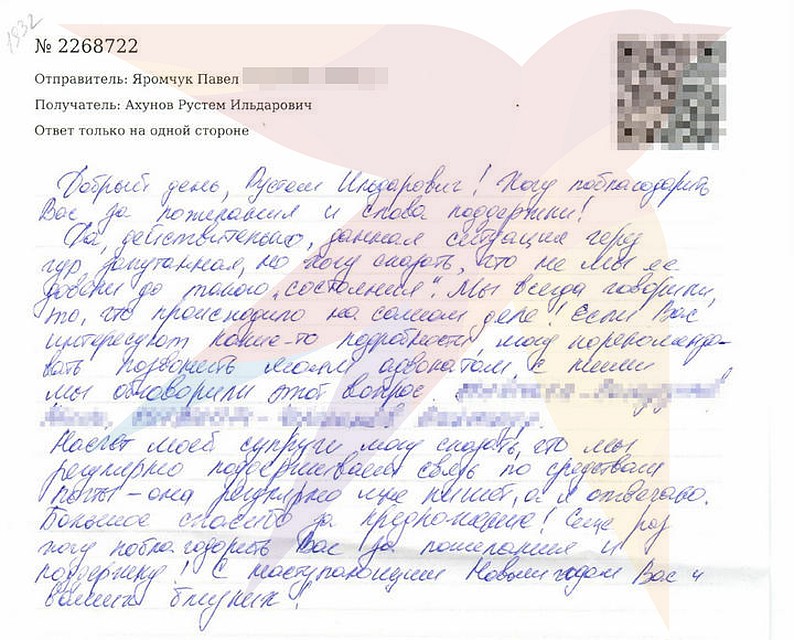 1932
№ 2268722
Отправитель: Яромчук Павел
Получатель: Ахунов Рустем Ильдарович
Ответ только на одной стороне
Добрый день, Рустем Ильдарович! Хочу поблагодарить
Вас за пожелания и слова поддержки!
Да, действительно, данная ситуация через
чур запутанная, но хочу сказать, что не мы ее
довели до такого „состояния". Мы всегда говорили,
то, что происходило на самом деле! Если Вас
интересуют какие-то подробности, могу порекомендо-
вать позвонить моим адвокатам, с ними
мы обговорили этот вопрос.
Насчет моей супруги могу сказать, что мы
регулярно поддерживаем связь по средствам
почты – она регулярно мне пишет, а я отвечаю.
Большое спасибо за предложение! Еще раз
хочу поблагодарить Вас за пожелания и
поддержку! С наступающим Новым годом Вас и
ваших близких!